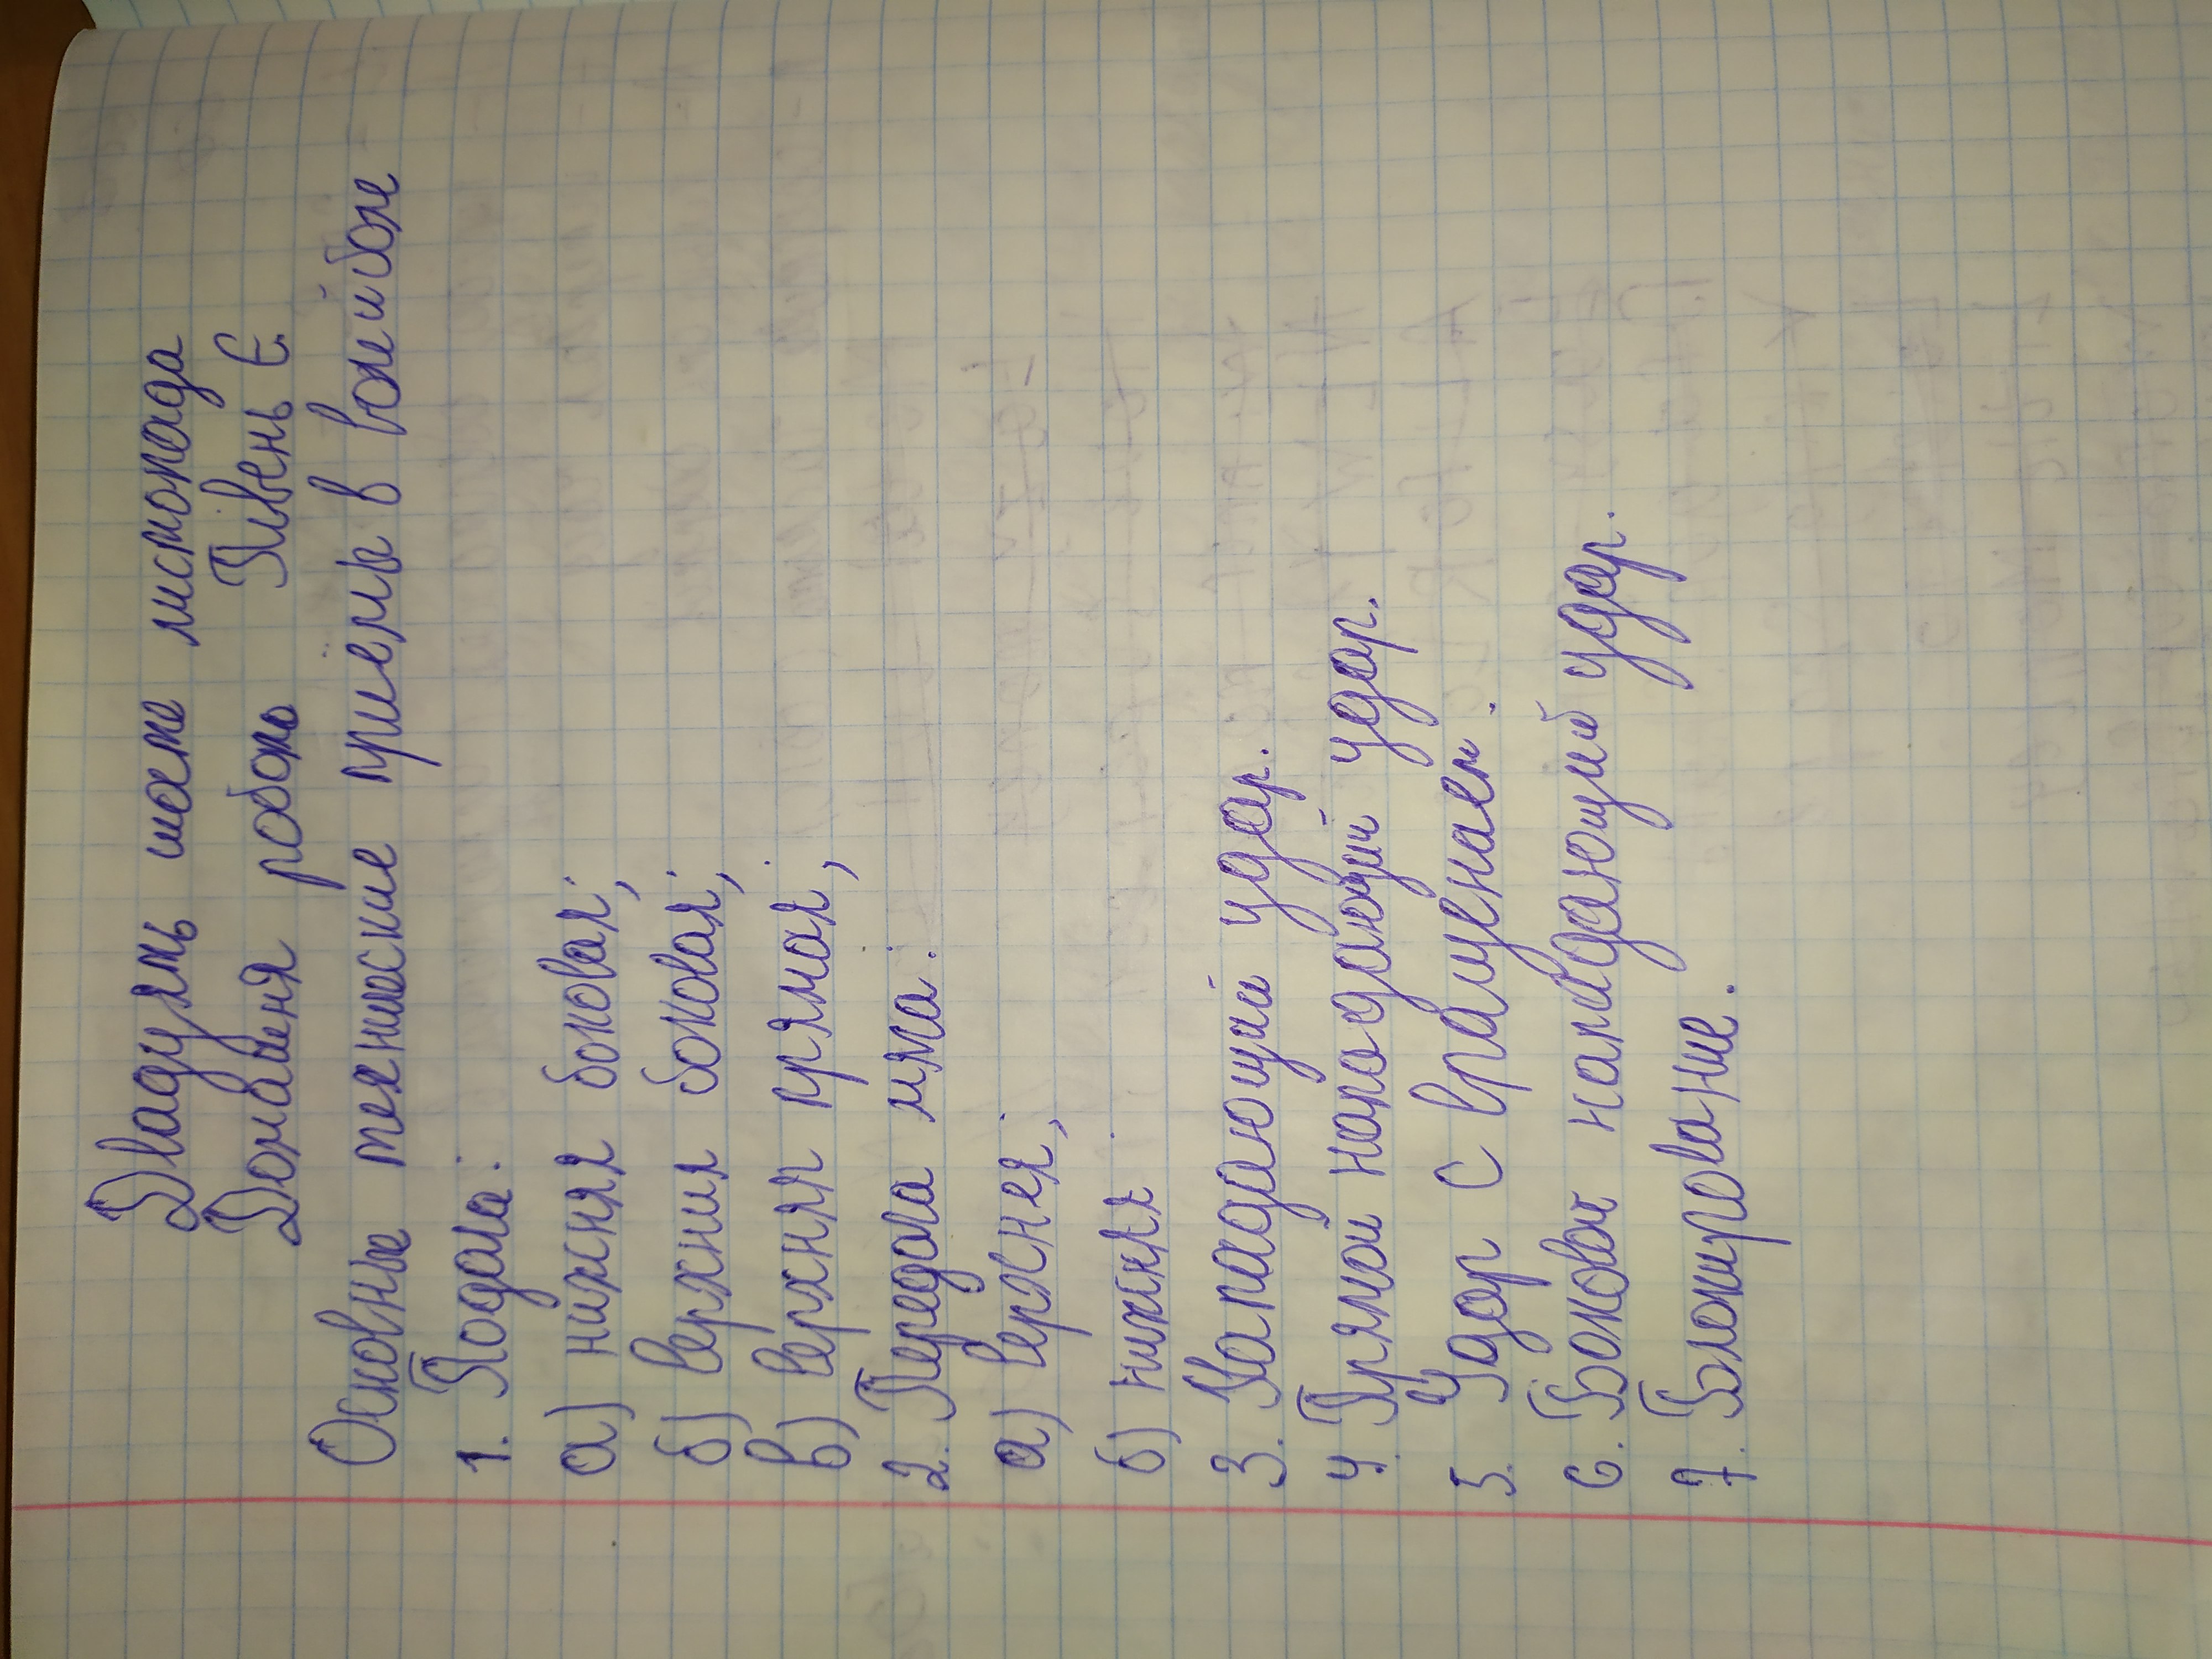 Двадцять шосте листопада
Домашня робота Півень Є
Основные технические приёмы в волейболе
1. Подача:
а) нижняя боковая;
б) верхния боковая;
в) верхняя прямая;
2. Передача мяча:
а) верхнея;
б) нижняя
3. Нападающий удар.
4. Прямой нападающий удар.
5. Удар с вращением.
6. Боковой нападающий удар.
7. Блокирование.